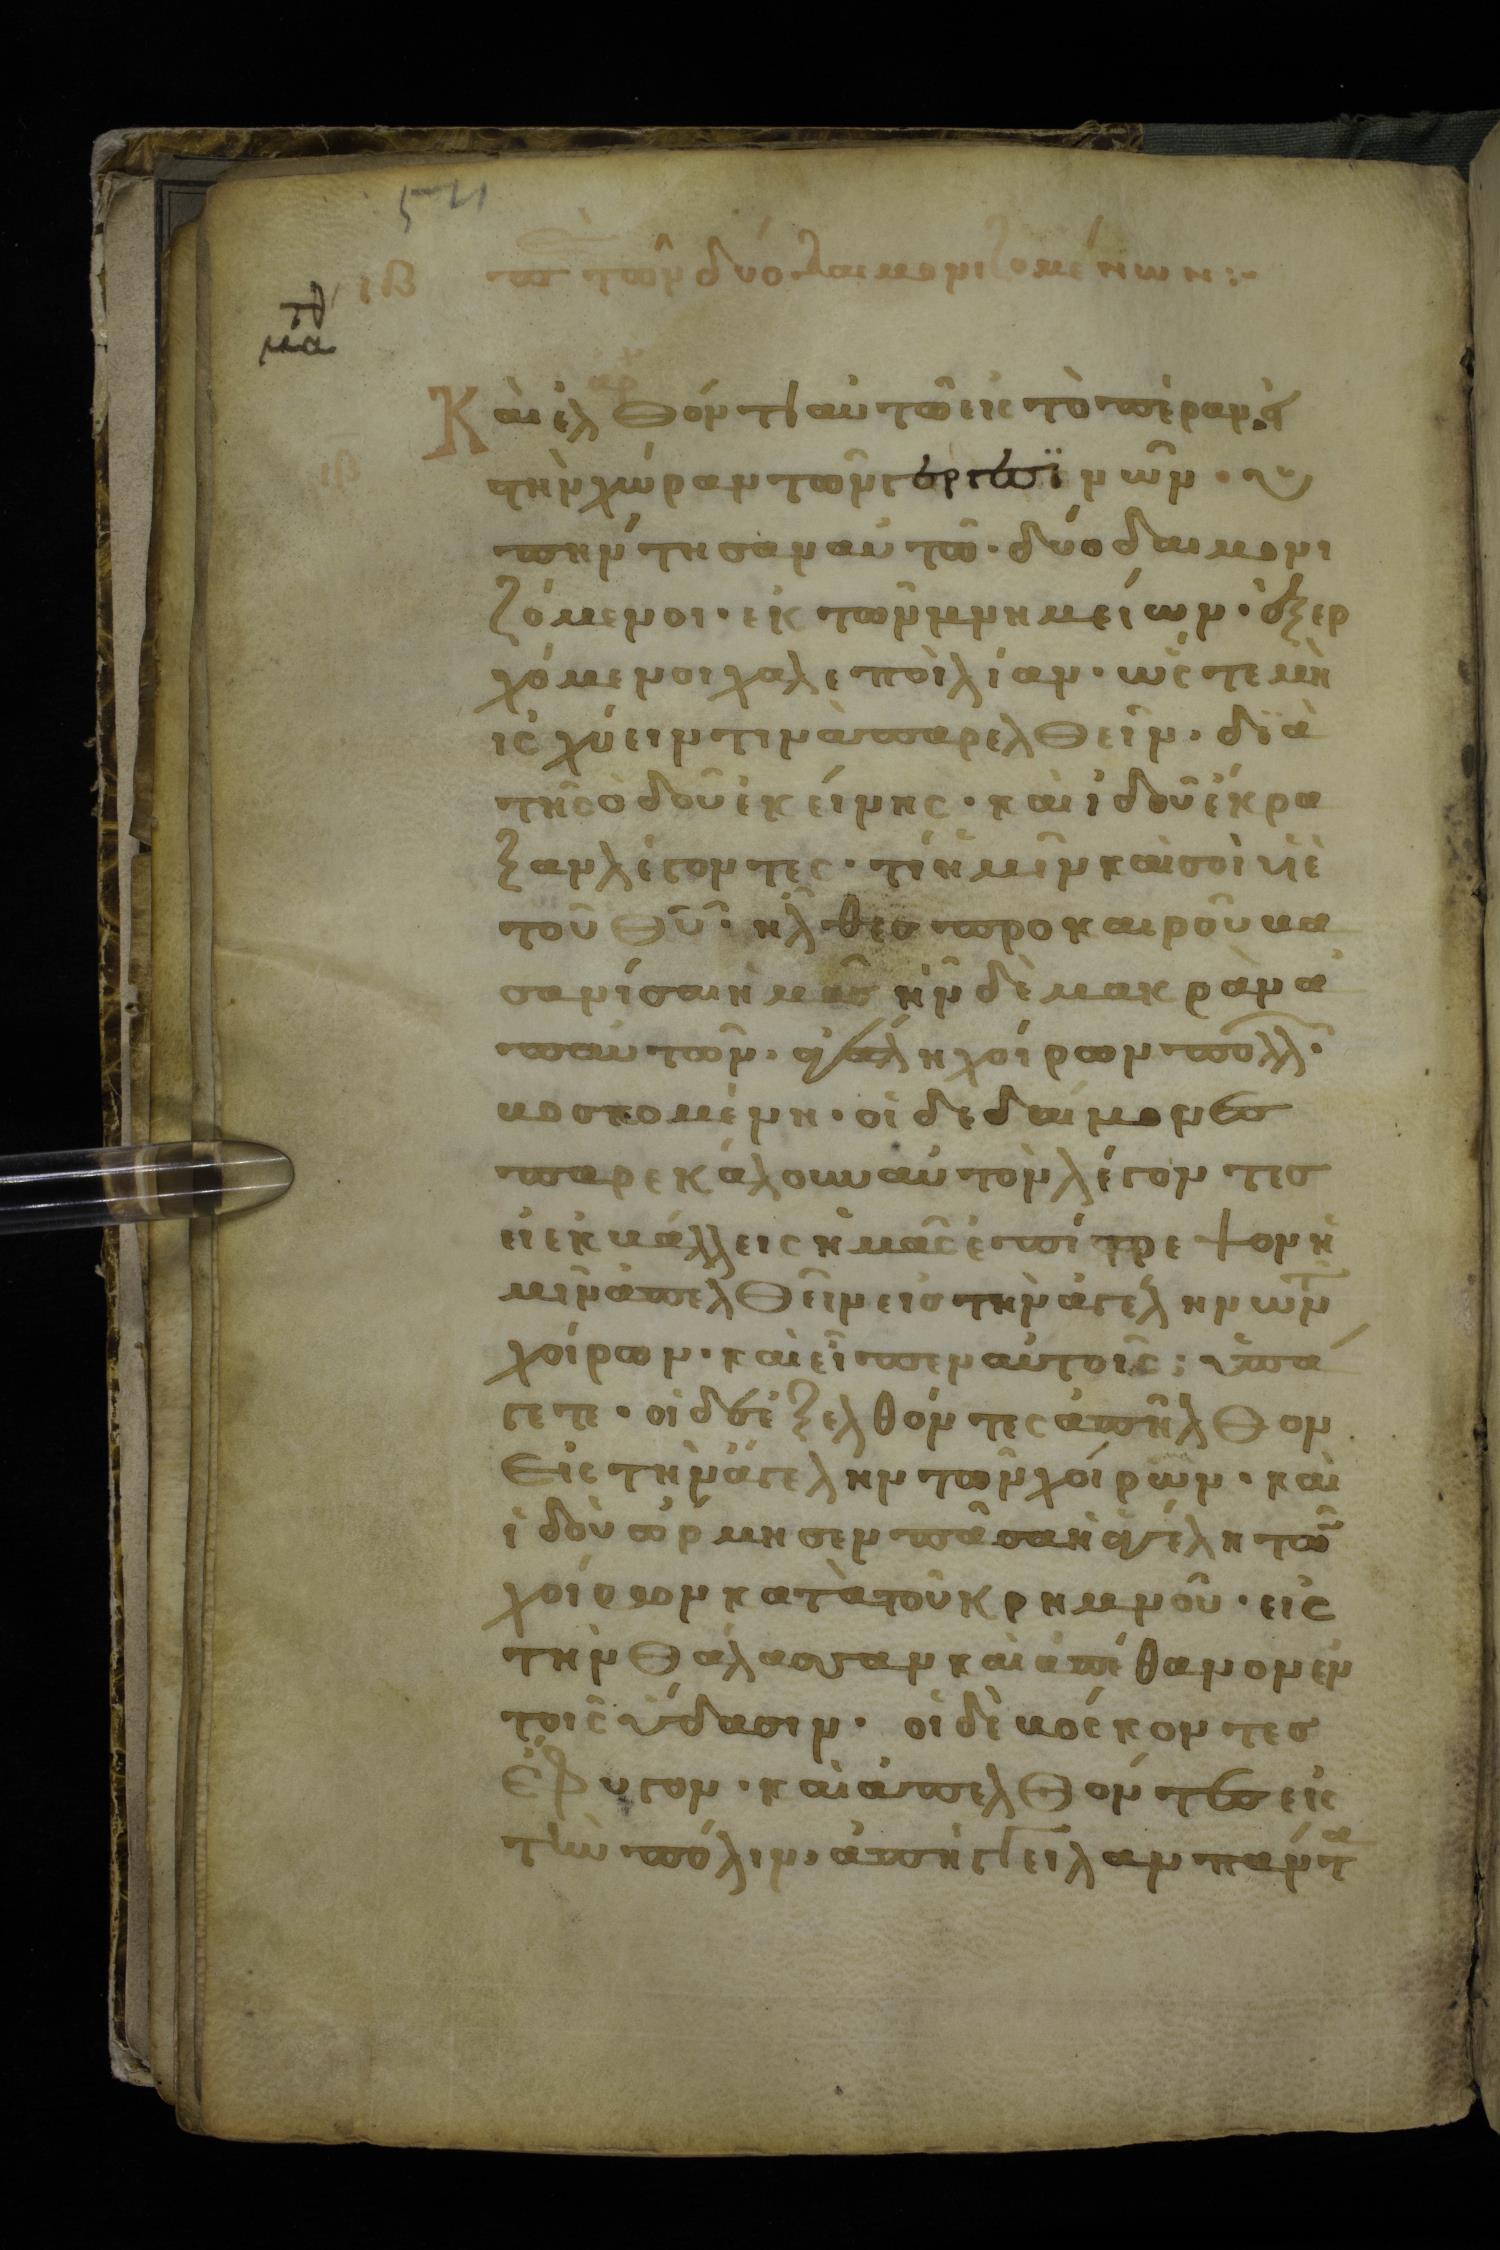 ιβ π τῶν δύο δαιμονιζομένων :~
Καὶ ἐλθόντι αὐτῶ εἰς τὸ πέραν εἰς
τὴν χώραν τῶν γεργεσινῶν · ὑ
πήντησαν αὐτῶ · δύο δαιμονι
ζόμενοι · ἐκ τῶν μνημείων · ἐξερ
χόμενοι χαλεποὶ λίαν · ὥστε μὴ
ἰσχύειν τινὰ παρελθεῖν · διὰ
τῆς ὁδοῦ ἐκείνης · καὶ ἰδοῦ ἔκρα
ξαν λέγοντες · τί ἡμῖν καὶ σοὶ υἱὲ
τοῦ θῦ · ἦλθες προ καιροῦ βα
σανίσαι ἡμᾶς ἦν δὲ μακρὰν ἀ
π αὐτῶν · ἀγέλη χοίρων πολλῶν
βοσκομένη · οἱ δε δαίμονες
παρεκάλουν αὐτὸν λέγοντες
εἰ ἐκβάλλεις ἡμᾶς ἐπίτρεψον ἡ
μῖν ἀπελθεῖν εἰς τὴν ἀγέλην τῶν
χοίρων · καὶ εἶπεν αὐτοῖς : ὑπά
γετε · οἱ δὲ ἐξελθόντες ἀπῆλθον
εἰς τὴν ἀγέλην τῶν χοίρων · καὶ
ἰδοὺ ὥρμησεν πᾶσα ἡ ἀγέλη τῶν
χοίρων κατὰ τοῦ κρημνοῦ · εἰς
τὴν θάλασσαν καὶ ἀπέθανον ἐν
τοῖς ὕδασιν · οἱ δὲ βόσκοντες
ἔφυγον · καὶ ἀπελθόντες εἰς
τὴν πόλιν, ἀπήγγειλαν πάντα